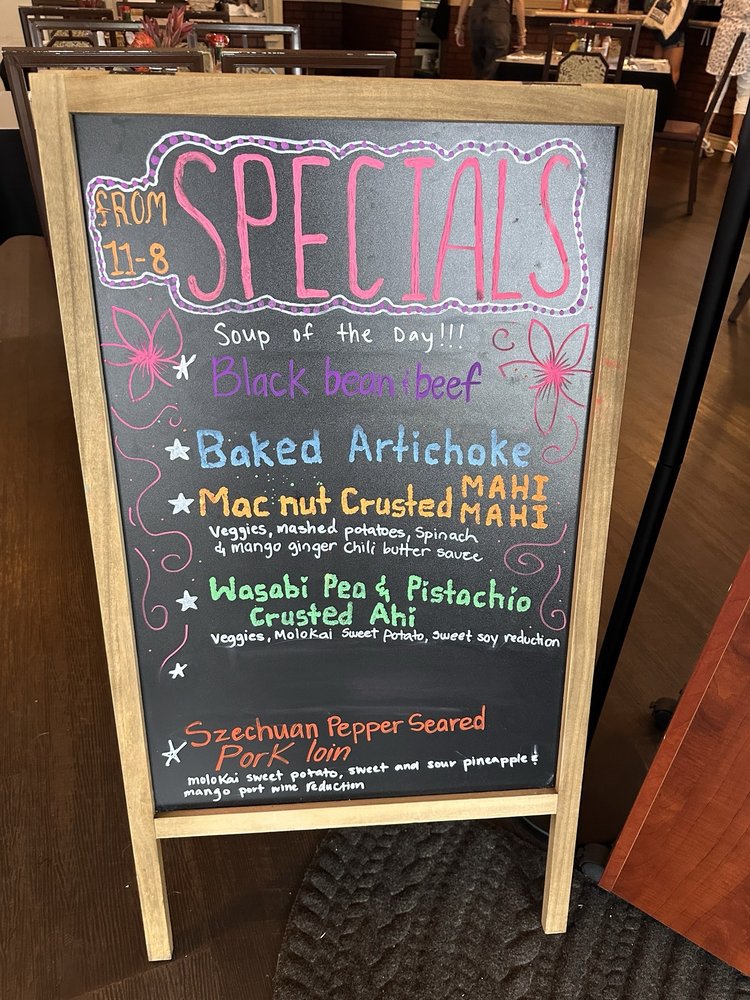 FROM
11-8
SPECIALS
Soup of the Day!!!
Black bean & beef
Baked Artichoke
Mac nut Crusted MAHI MAHI
Veggies, mashed potatoes, Spinach
& mango ginger Chili butter sauce
Wasabi Pea & Pistachio
Crusted Ahi
Veggies, Molokai Sweet Potato, sweet soy reduction
Szechuan Pepper Seared
Pork loin
molokai sweet potato, sweet and sour pineapple &
mango port wine reduction